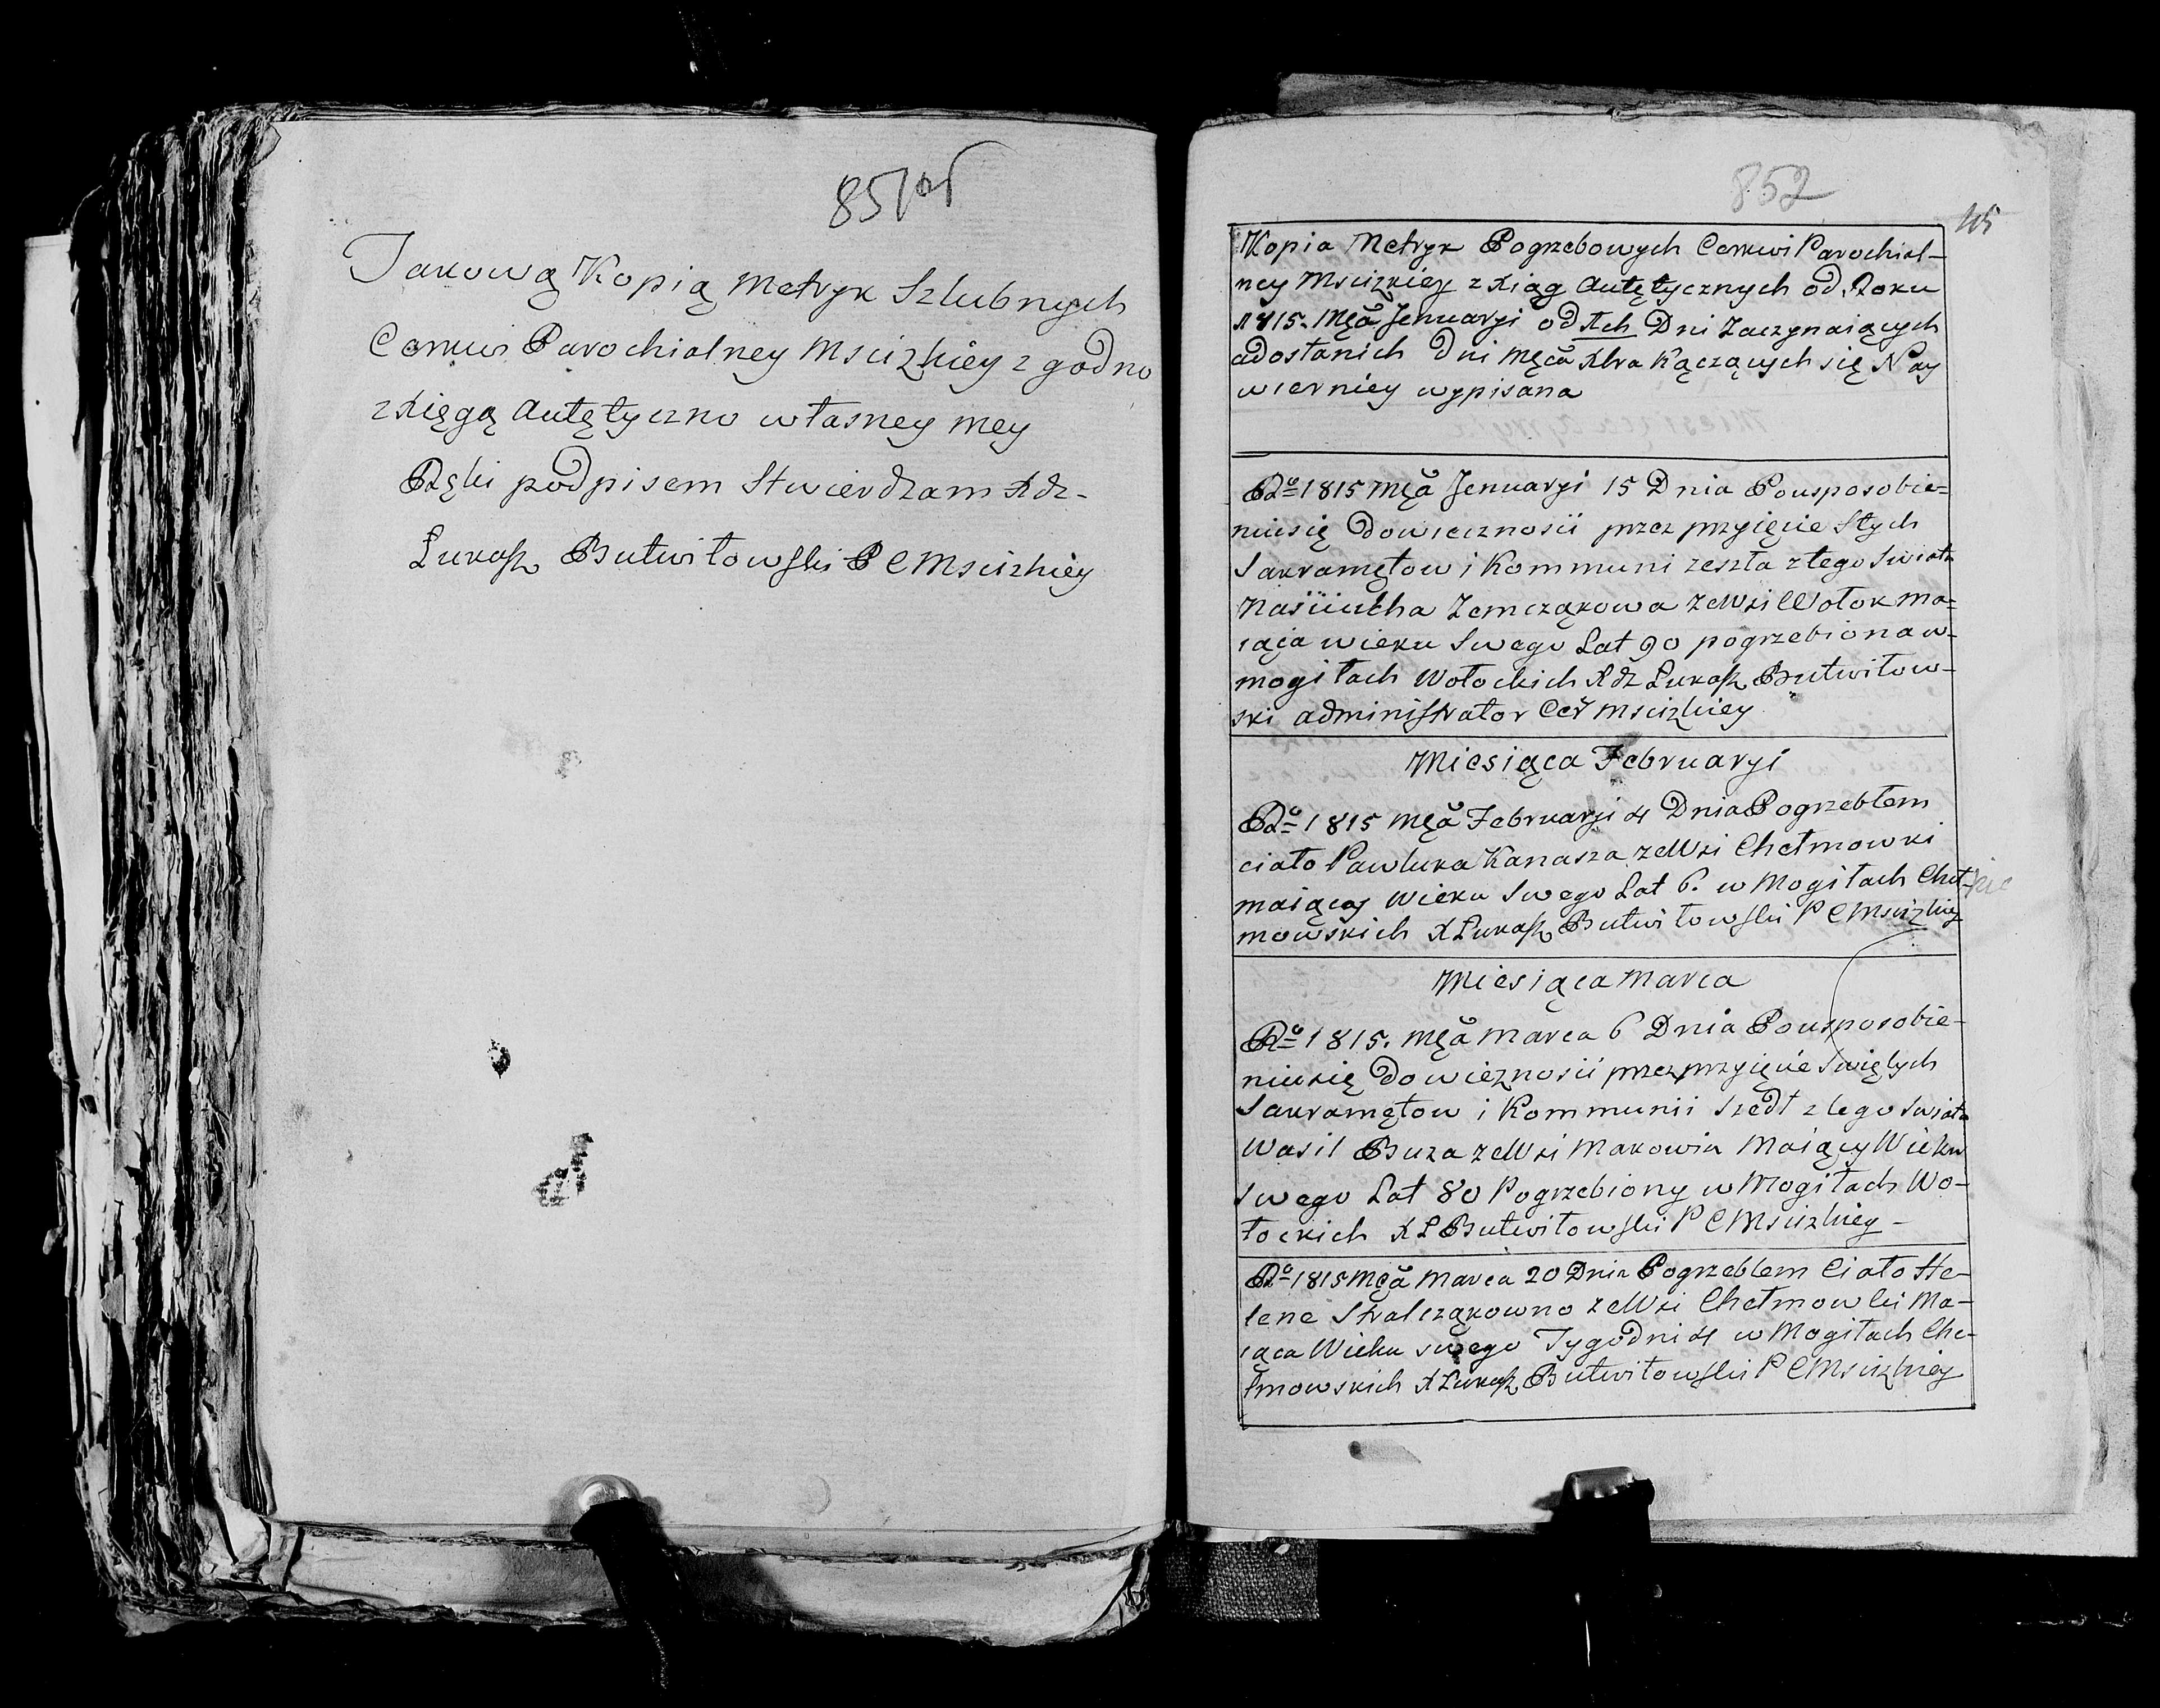 851об
Jakową Kopią Metryk Szlubnych
Cerkwi Parochialney Mscizkiey zgodno
z Xięgą Autętyczno własney mey
Ręki podpisem Stwierdzam Xdz-
Łukasz Butwiłowski P C Mscizkiey
852
115
Kopia Metryk Pogrzebowych Cerkwi Parochial-
ney Mscizkiey z Xiąg Autętycznych od Roku
1815. Mςa Jenuaryi od Xch Dni Zaczynaiących
adostanich Dni Męca Xbra Kączących się Nay
wierniey wypisana
Ro 1815 Męa Jenuaryi 15 Dnia Pousposobie=
niusię Dowiecznosii przez przyięcie Stych
Sakramętow i Kommuni zeszła z tego swiata
Nasiiutha Zemcząkowa ze Wsi Wołok ma=
iąca wieku Swego Lat 90 pogrzebiona w-
mogiłach Wołockich Xdz Łukasz Butwiłow-
ski administrator Cer Mscizkiey
Miesiąca Februaryi
Ro 1815 Męa Februaryi 4 Dnia Pogrzebłem
ciało Pawluka Kanasza ze Wsi Chełmowki
maiący Wieku Swego Lat 6. w Mogiłach Cheł-
mowskich X Łukasz Butwiłowski P C Mscizkiey
Miesiąca Marca
Ro 1815. Męa Marca 6 Dnia Pousposobie-
niusię Dowieznosii przez przyięcie Swiętych
Sakramętow i Kommunii szedł z tego swiata
Wasil Buza ze Wsi Makowia Maiący Wieku
Swego Lat 80 Pogrzebiony w Mogiłach Wo-
łockich X Ł Butwiłowski P C Mscizkiey -
Ro 1815 Męa Marca 20 Dnia Pogrzeblem Ciało He-
lene Stralcząkowno ze Wsi Chełmowki Ma-
iąca Wieku swego Tygodni 4 w Mogiłach Che-
łmowskich X Łukasz Butwiłowski P C Mscizkiey